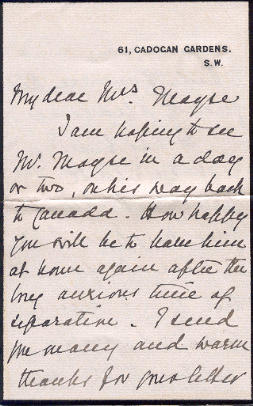 61, CADOGAN GARDENS.
S.W.
My dear Mrs. Mayse
I am hoping to see
Mr. Mayse in a day
or two, on his way back
to Canada. How happy
you will be to have him
at home again after the
long anxious time of
separation. I send
you many and warm
thanks for your letter